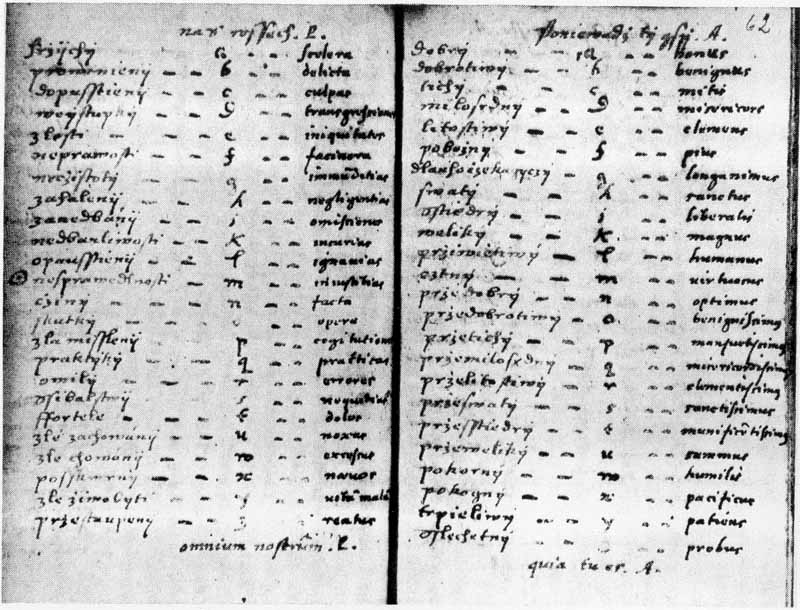 na ň wssech. L.
hržijchy — — a — — scelera
prowinieny — — b — — delicta
dopusstieny — — c — — culpas
weystupky — — d — — transgressiones
zlosti — — e — — iniquitates
neprawosti — — f — — facinora
neczistoty — — g — — immūditias
zahaleny — — h — — negligentias
zanedbany — — i — — omissiones
nedbanliwosti — — k — — incurias
opausstieny — — l — — ignauias
nesprawedlnosti — — m — — iniustitias
cziny — — n — — facta
skutky — — o — — opera
zla misslleny — — p — — cogitationes
praktyky — — q — — practicas
omily — — r — — errores
ssibalstwy — — s — — nequitias
ffortele — — t — — dolos
zlé zachowany — — u — — noxas
zle chowany — — w — — excessus
posskwrny — — x — — naeuos
zle ziwobyti — — y — — uitā malā
przestaupeny — — z — — reatus
omnium nostrūm. L.
62
Poniewadž ty gsy. A.
dobry — — a — — bonus
dobrotiwy — — b — — benignus
tichy — — c — — mitis
milosrdny — — d — — misericors
litostiwy — — e — — clemens
pobožny — — f — — pius
dlauhoczekagyczy — g — — longanimus
swaty — — h — — sanctus
sstiedry — — i — — liberalis
weliky — — k — — magnus
prziwietiwy — — l — — humanus
cztny — — m — — uirtuosus
przedobry — — n — — optimus
przedobrotiwy — — o — — benignissimus
przetichy — — p — — mansuetissimus
przemilosrdny — — q — — misericordissimus
przelitostiwy — — r — — clementissimus
przeswaty — — s — — sanctissimus
przesstiedry — — t — — munificētissimus
przeweliky — — u — — summus
pokorny — — w — — humilis
pokogny — — x — — pacificus
trpieliwy — — y — — patiens
sslechetny — — z — — probus
quia tu es. A.